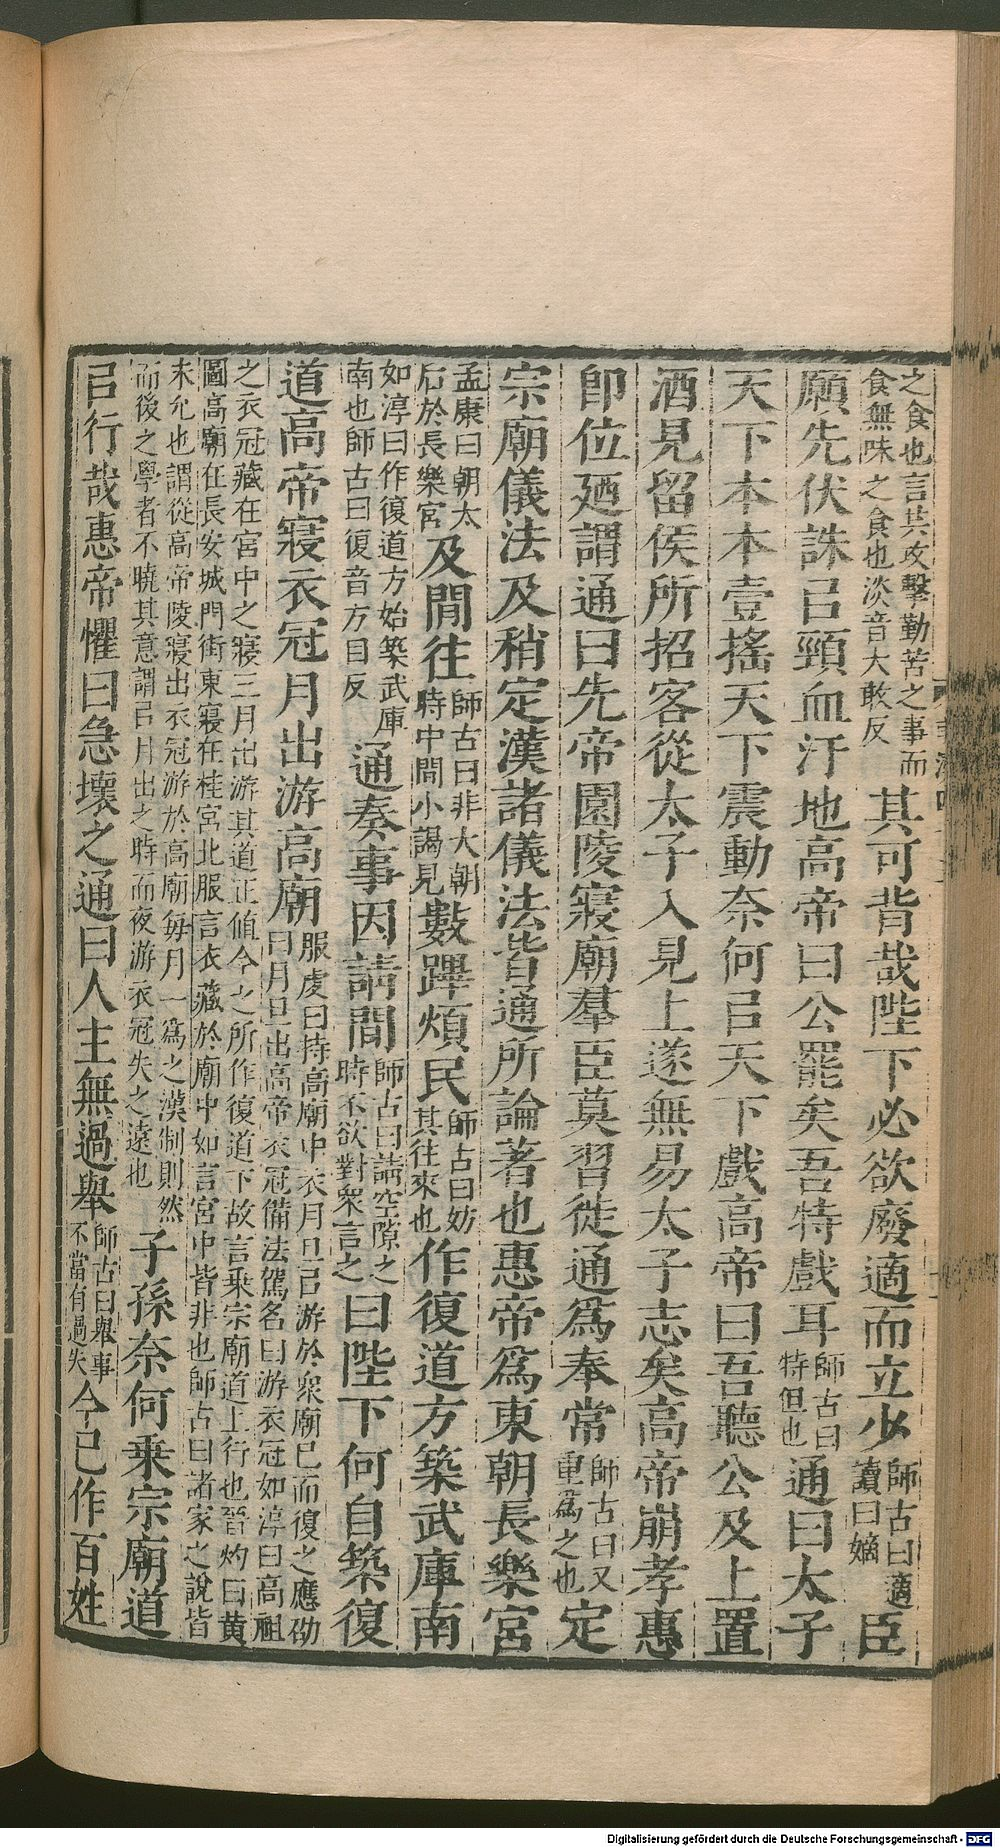 之食也言共攻擊勤苦之事而食無味之食也淡音大敢反其可背哉陛下必欲廢適而立少師古曰適讀曰嫡臣
願先伏誅㠯頸血汙地高帝曰公罷矣吾特戲耳師古曰特但也通曰太子
天下本本壹搖天下震動奈何㠯天下戲高帝曰吾聽公及上置
酒見留侯所招客從太子入見上遂無易太子志矣高帝崩孝惠
卽位廼謂通曰先帝園陵寢廟羣臣莫習徙通爲奉常師古曰又重爲之也定
宗廟儀法及稍定漢諸儀法皆通所論著也惠帝爲東朝長樂宮
孟康曰朝太后於長樂宮及閒往師古曰非大朝時中閒小謁見數蹕煩民師古曰妨其往來也作復道方築武庫南
如淳曰作復道方始築武庫南也師古曰復音方目反通奏事因請閒師古曰請空隙之時不欲對衆言之曰陛下何自築復
道高帝寢衣冠月出游高廟服虔曰持高廟中衣月旦㠯游於衆廟已而復之應劭曰月旦出高帝衣冠備法駕名曰游衣冠如淳曰高祖
之衣冠藏在宮中之寢三月出游其道正值今之所作復道下故言乘宗廟道上行也晉灼曰黃圖高廟在長安城門街東寢在桂宮北服言衣藏於廟中如言宮中皆非也師古曰諸家之說皆
未允也謂從高帝陵寢出衣冠游於高廟每月一爲之漢制則然而後之學者不曉其意謂㠯月出之時而夜游衣冠失之遠也子孫奈何乘宗廟道
㠯行哉惠帝懼曰急壞之通曰人主無過舉師古曰舉事不當有過失今已作百姓
Digitalisierung gefördert durch die Deutsche Forschungsgemeinschaft - DFG